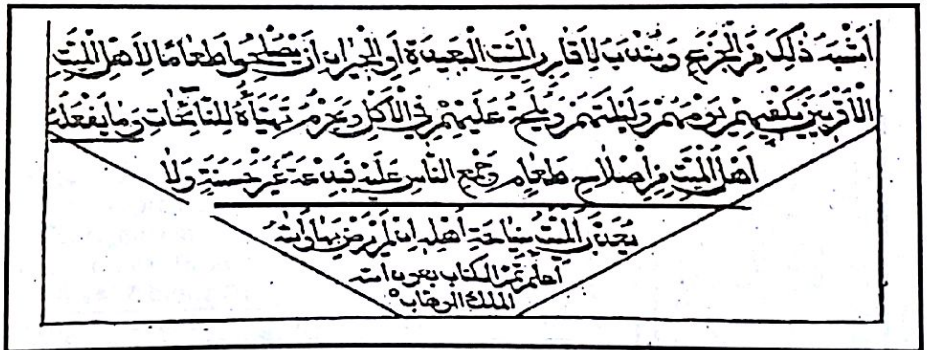 أشبه ذلك من الجزع ويندب لأقارب الميت البعيدة أو الجيران أن يصلحوا طعاما لأهل الميت
الأقربين يكفيهم يومهم وليلتهم ويلح عليهم في الأكل ويحرم تهيئة للنائحات وما يفعله
أهل الميت من إصلاح طعام وجمع الناس عليه فبدعة غير حسنة ولا
يعذب الميت بنياحة أهله إن لم يرض بها والله
أعلم تم الكتاب بعون الله
الملك الوهاب